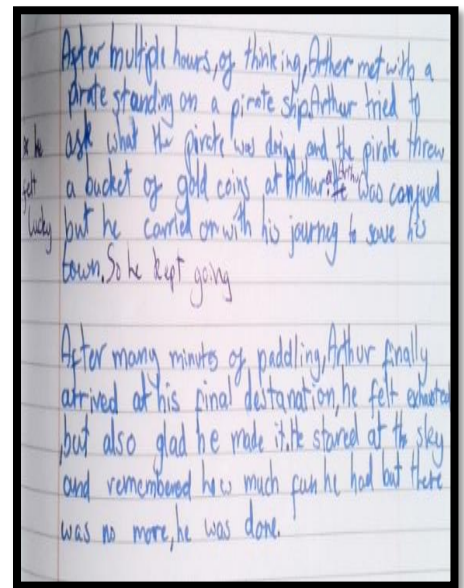 After multiple hours, of thinking, Arther met with a
pirate standing on a pirate ship. Arthur tried to
ask what the pirate was doing and the pirate threw
a bucket of gold coins at Arthur. He was confused
but he carried on with his journey to save his
town. So he kept going
* he
felt
lucky
After many minutes of paddling, Arthur finally
arrived at his final destanation, he felt exhausted
but also glad he made it. He stared at the sky
and remembered how much fun he had but there
was no more, he was done.